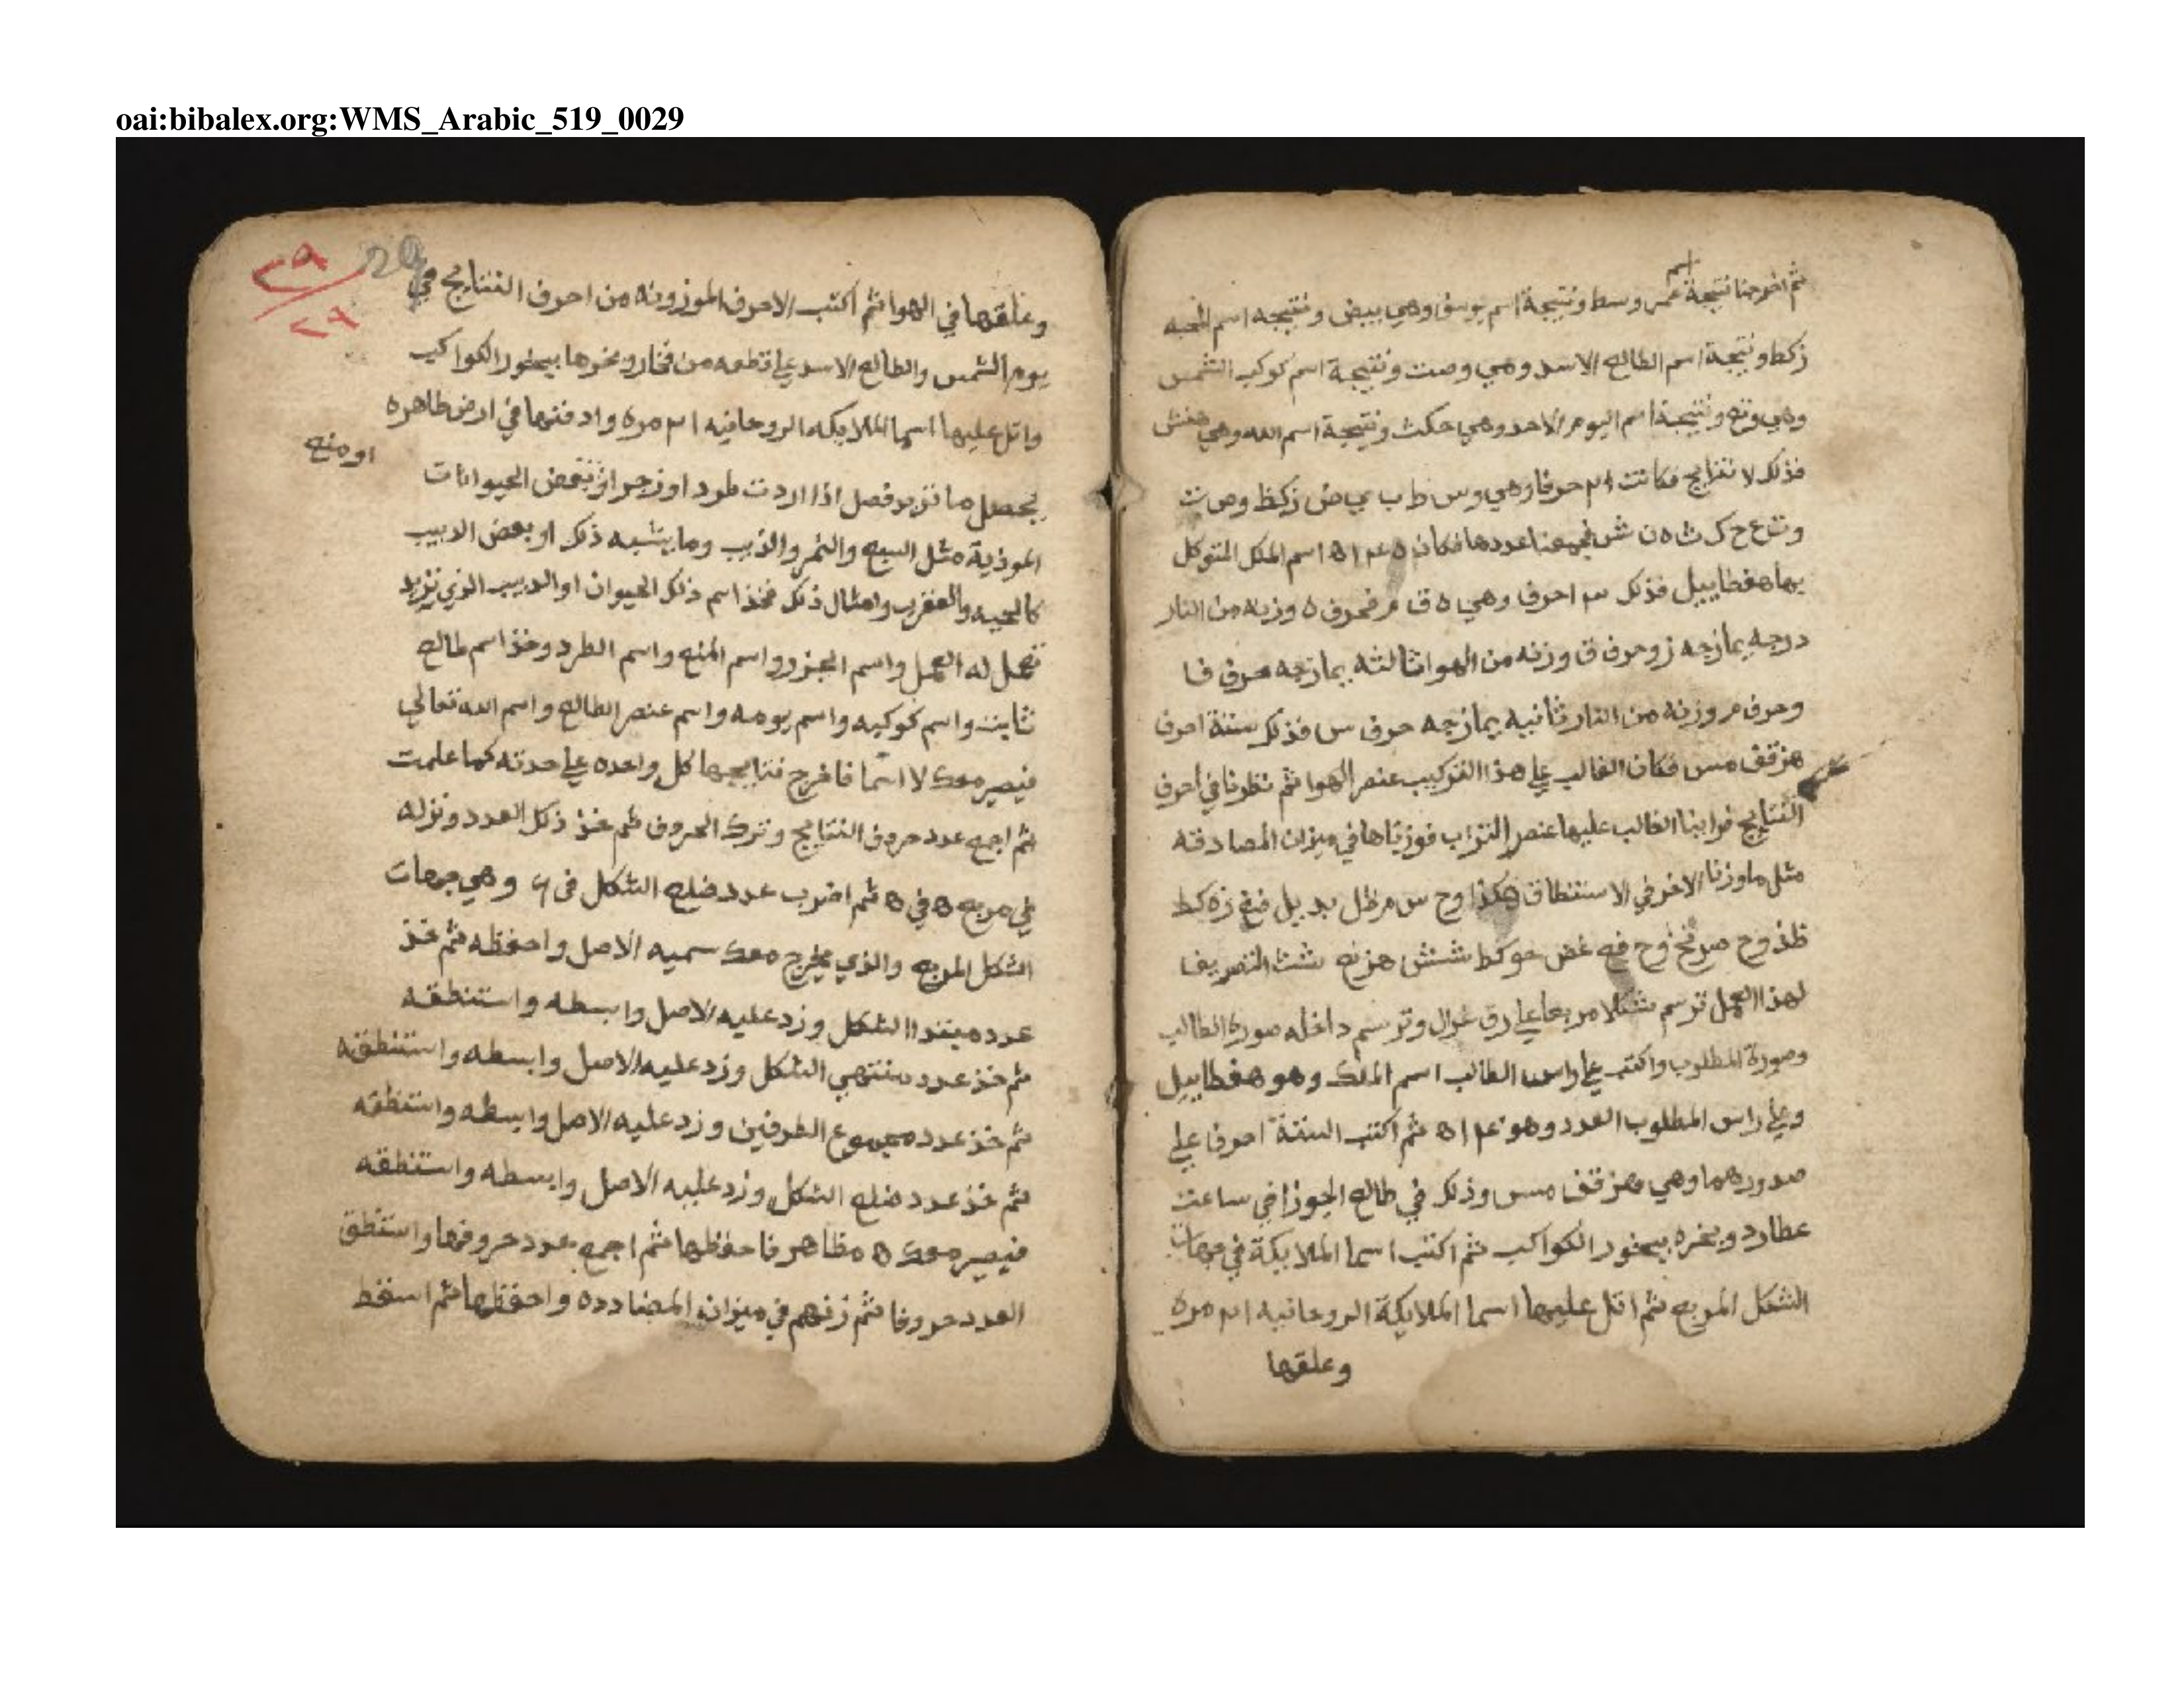 oai:bibalex.org:WMS_Arabic_519_0029
ثم اخرجنا نتيجة اسم عمر وسط ونتيجة اسم يوسف وهي ببض ونتيجه اسم المحبه
زكط ونتيجة اسم الطالع الاسد وهي وصت ونتيجة اسم كوكب الشمس
وهي وتع ونتيجة اسم اليوم الاحد وهي حكث ونتيجة اسم الله وهي
فذلك لا نتايج فكانت ٢١ حرفا وهي وس ط ب ي ض زكظ وص ت
وت ع ح ك ث ه ن ش فجمعنا عددها فكان اسم الملك المتوكل
بها هغطاييل فذلك ٣ احرف وهي ه ق م فحرف ه وزنه من النار
درجه يمازجه ز وحرف ق وزنه من الهوا ثالثه يمازجه حرف ف
وحرف م وزنه من النار ثانيه يمازجه حرف س فذلك ستة احرف
هزقف مس فكان الغالب علي هذا التركيب عنصر الهوا ثم نظرنا في احرف
النتايج فراينا الغالب عليها عنصر التراب فوزناها في ميزان المصادقه
مثل ما وزنا الاخر في الاستنطاق هكذا وح س مظل بد يل ضغ زه كط
ظذ وح فه غض حو كط شتش هز نع شث التصريف
لهذا العمل ترسم شكلا مربعا علي رق غزال وترسم داخله صورة الطالب
وصورة المطلوب واكتب علي راس الطالب اسم الملك وهو هغطاييل
وعلي راس المطلوب العدد وهو ثم اكتب الستة احرف علي
صدورهما وهي هزقف مس وذلك في طالع الجوزا في ساعت
عطارد وبخره ببخور الكواكب ثم اكتب اسما الملايكة في جهات
الشكل المربع ثم اتل عليها اسما الملايكة الروحانيه ٢١ مره
وعلقها
29
٢٩
٢٩
وعلقها في الهوا ثم اكتب الاحرف الموزونه من احرف النتايج في
يوم الشمس والطالع الاسد علي قطعه من فخار وبخرها ببخور الكواكب
واتل عليها اسما الملايكه الروحانيه ٢١ مره وادفنها في ارض طاهره
او منع
يحصل ما تريد فصل اذا اردت طرد او زجر او بعض الحيوانات
الموذية مثل السبع والنمر والذيب وما يشبه ذلك او بعض الدبيب
كالحيه والعقرب وامثال ذلك فخذ اسم ذلك الحيوان او الدبيب الذي تريد
تعمل له العمل واسم الجزر واسم المنع واسم الطرد وخذ اسم طالع
ثابت واسم كوكبه واسم يومه واسم عنصر الطالع واسم الله تعالي
فيصير معك لا اسما فاخرج نتايجها كل واحده علي حدته كما علمت
ثم اجمع عدد حروف النتايج وترك الحروف ثم خذ ذلك العدد ونزله
في مربع ٥ في ٥ ثم اضرب عدد ضلع الشكل في ٤ وهي جهات
الشكل المربع والذي يخرج معك سميه الاصل واحفظه ثم خذ
عدد مبتدا الشكل وزد عليه الاصل وابسطه واستنطقه
ثم خذ عدد منتهي الشكل وزد عليه الاصل وابسطه واستنطقه
ثم خذ عدد مجموع الطرفين وزد عليه الاصل وابسطه واستنطقه
ثم خذ عدد ضلع الشكل وزد عليه الاصل وابسطه واستنطقه
فيصير معك ٥ مظاهر فاحفظها ثم اجمع عدد حروفها واستنطق
العدد حروفا ثم زنهم في ميزان المضادده واحفظها ثم اسقط